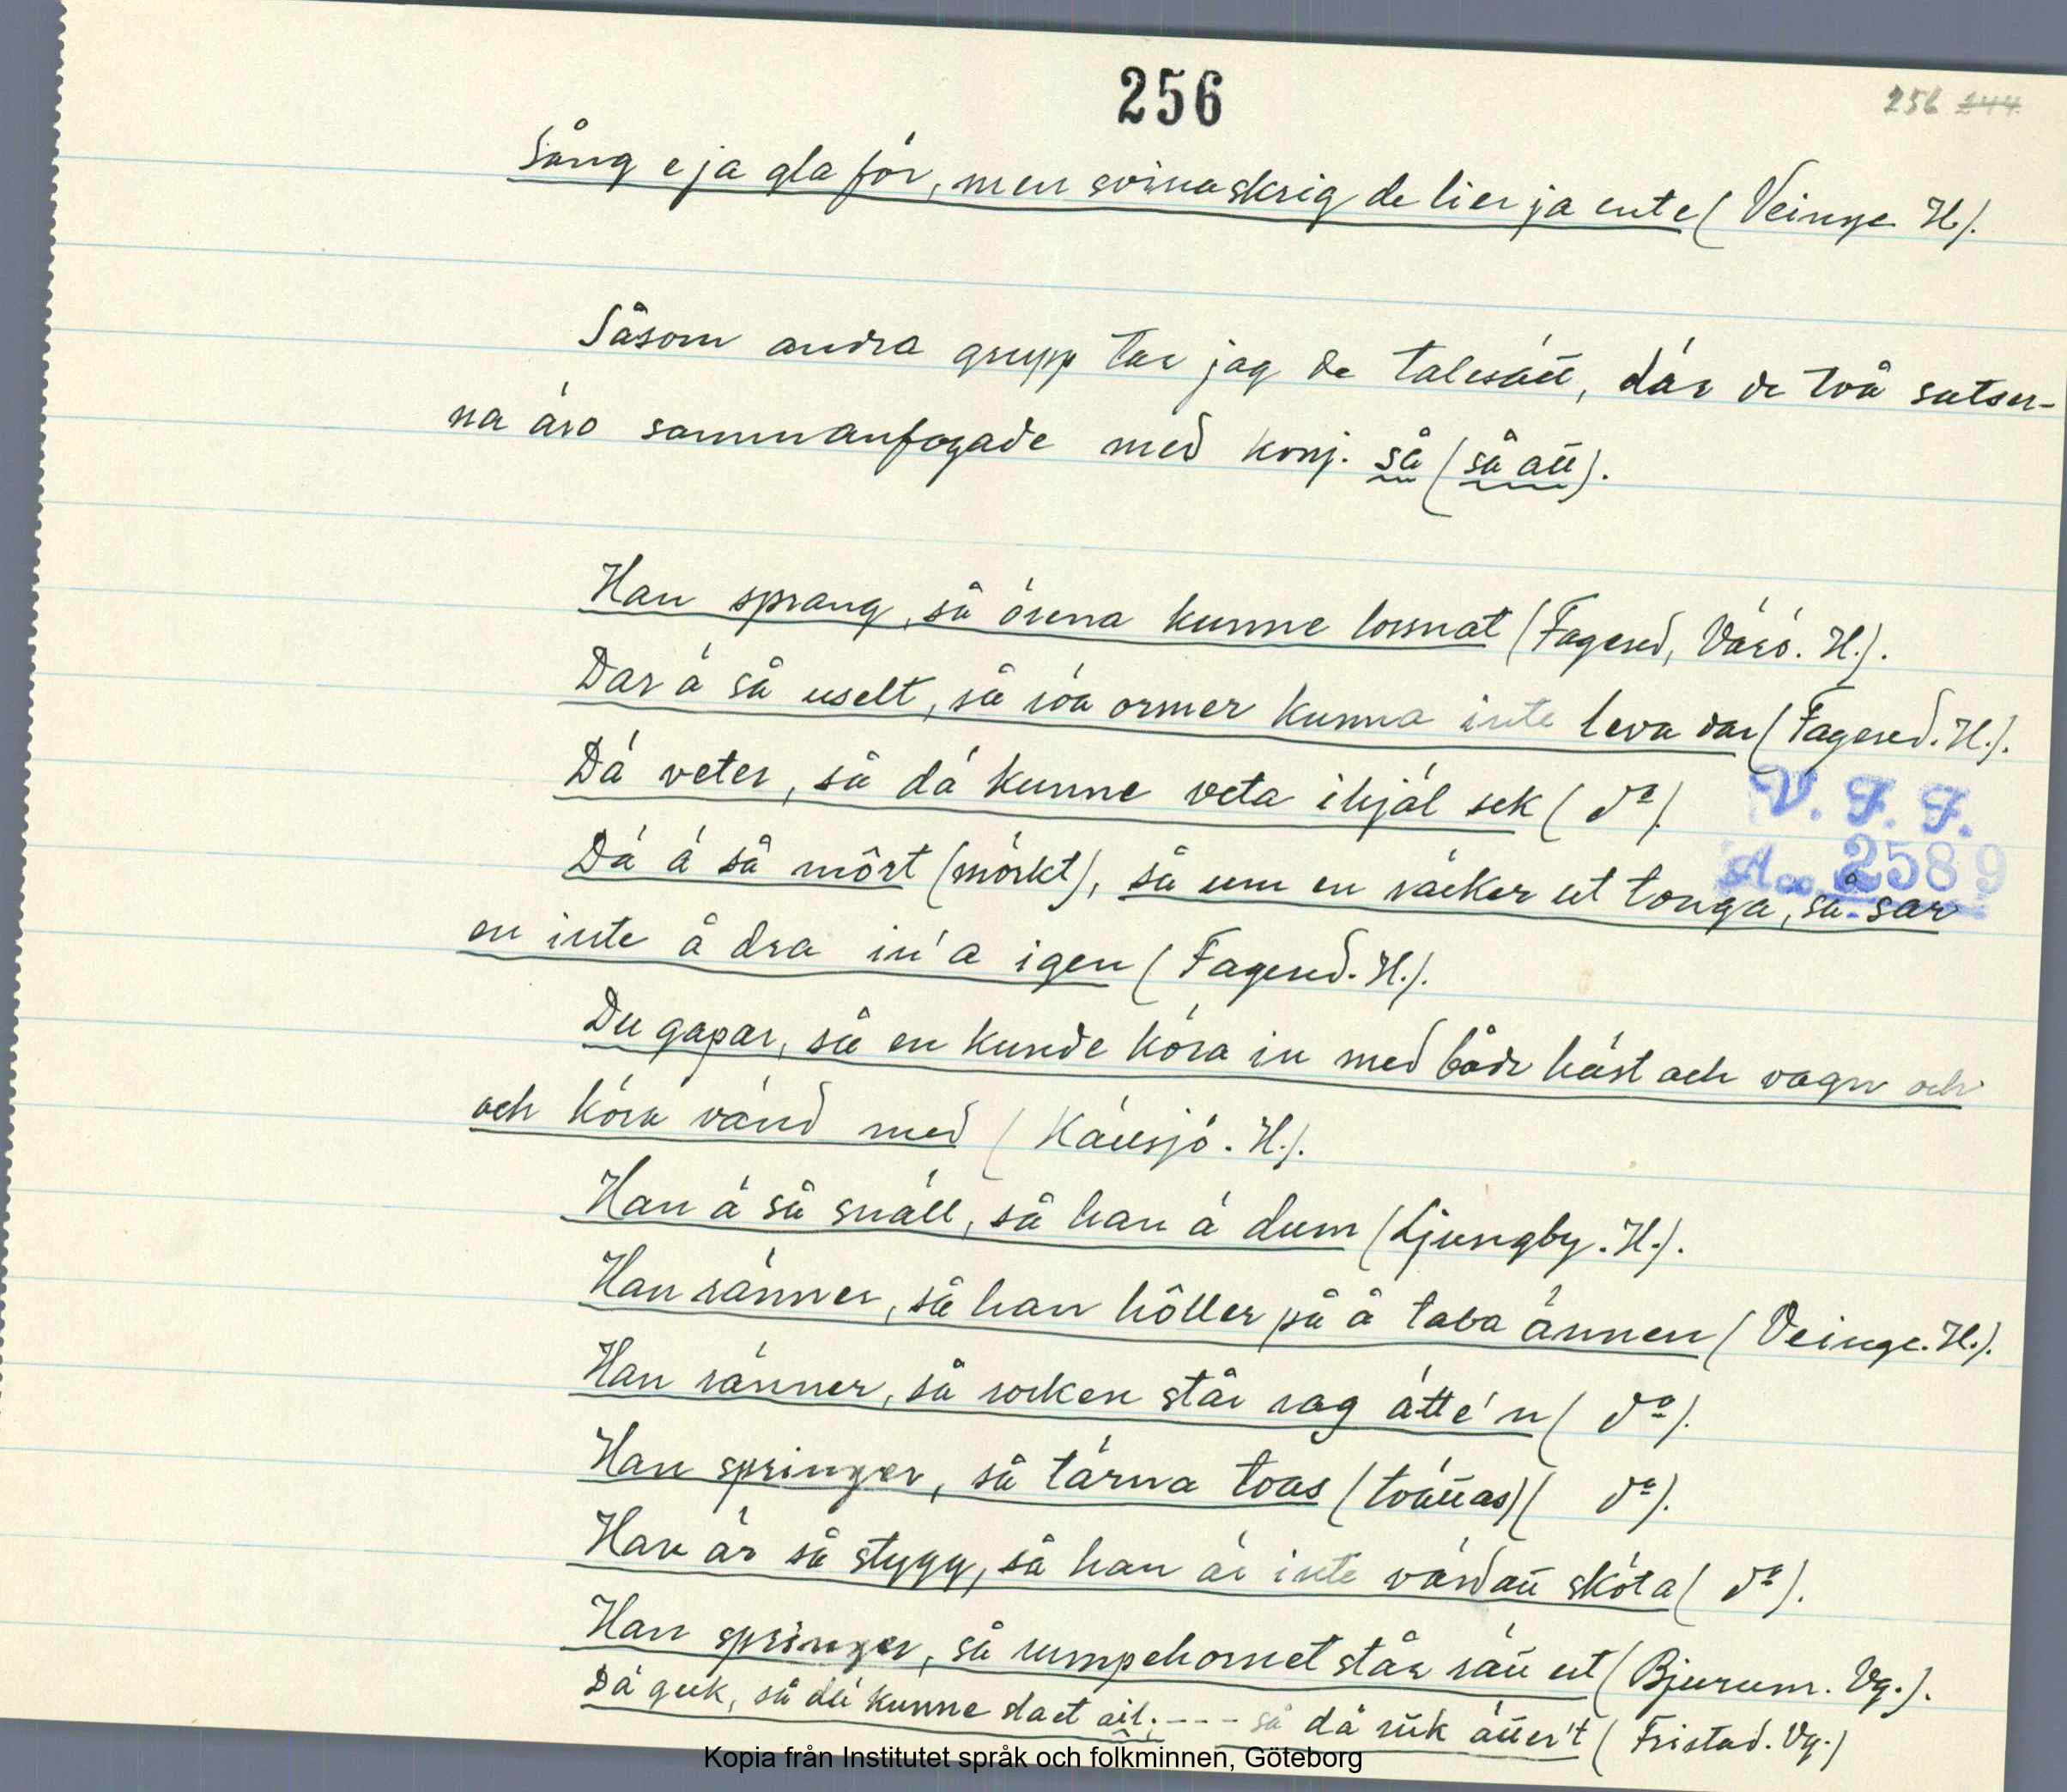 256
256 244
Sång e ja gla för, men svinaskrig de lier ja ente (Veinge H.).
Såsom andra grupp tar jag de talesätt, där de två satser-
na äro sammanfogade med konj. så (så att).
Han sprang, så örena kunne lossnat (Fagered, Värö. H.).
Dar ä så uselt, så röa ormer kunna inte leva dar (Fagered. H.).
Dä veter, så dä kunne veta ihjäl sek (do).
V. F. F.
Acc. 2589
Dä ä så môrt (mörkt), så um en räcker ut tonga, så sar
en inte å dra in'a igen (Fagered. H.).
Du gapar, så en kunde köra in med både häst och vagn och
och köra vänd med (Källsjö. H.).
Han ä så snäll, så han ä dum (Ljungby. H.).
Han ränner, så han hôller på å taba ännen (Veinge. H.).
Han ränner, så rocken står rag ätte'n (do).
Han springer, så tärna toas (tvättas) (do).
Han är så stygg, så han är inte värd att sköta (do).
Han springer, så rumpehornet står rätt ut (Bjurum. Vg.).
Dä gek, så dä kunne slaet ail. --- så dä rük ätter't (Fristad. Vg.)
Kopia från Institutet språk och folkminnen, Göteborg